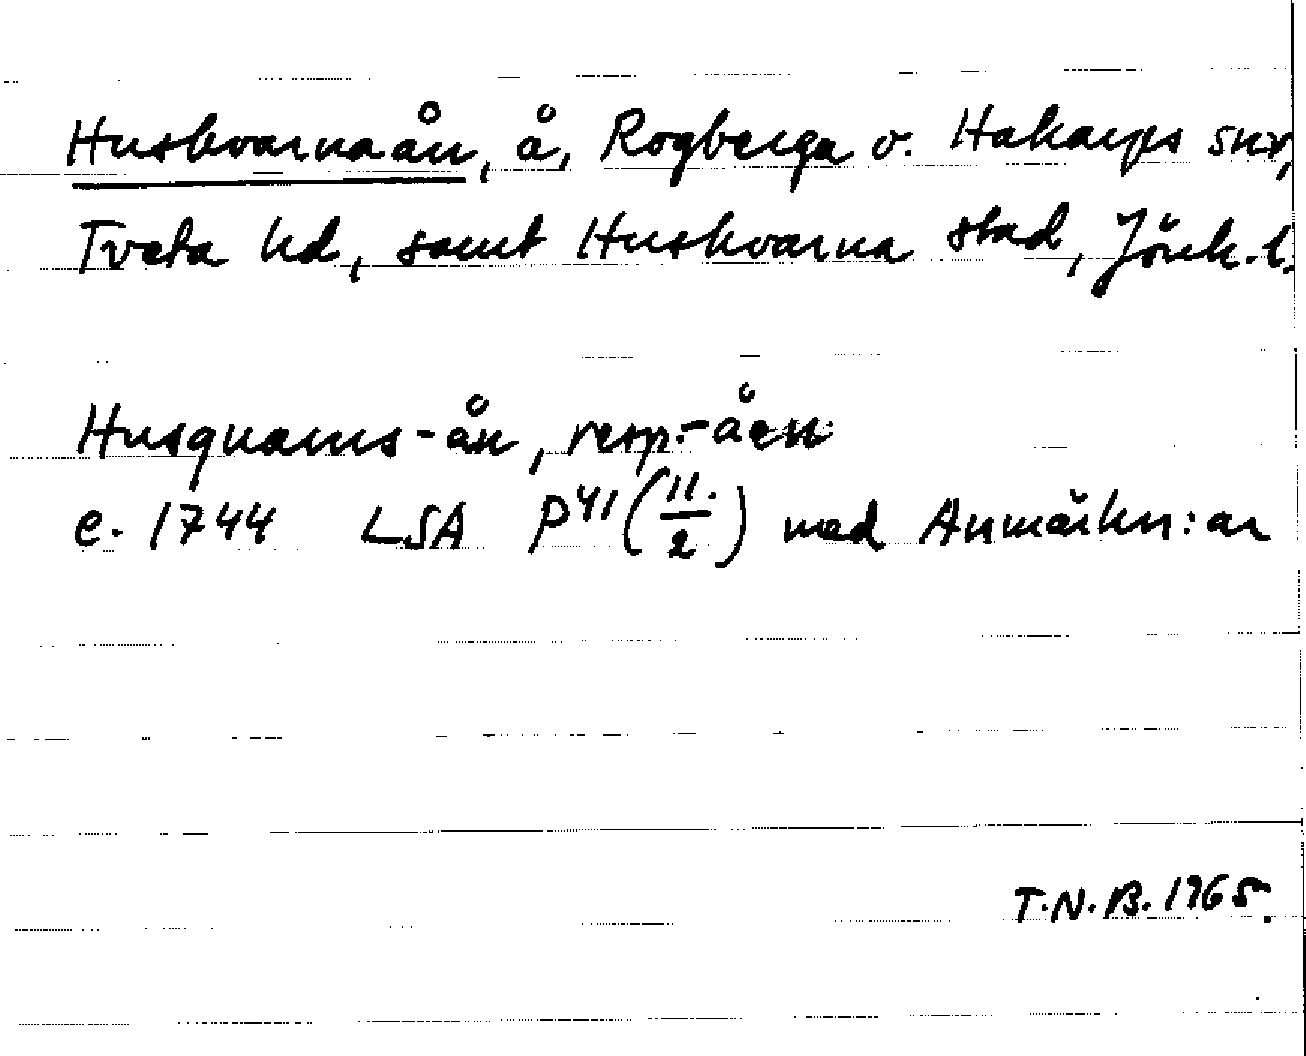 Huskvarnaån, å, Rogberga o. Hakarps snr,
Tveta hd, samt Huskvarna stad, Jönk. l.
Husquarns-ån, resp. -åen
c. 1744 LSA P41 (11./2) med Anmärkn:ar
T.N.B. 1965.